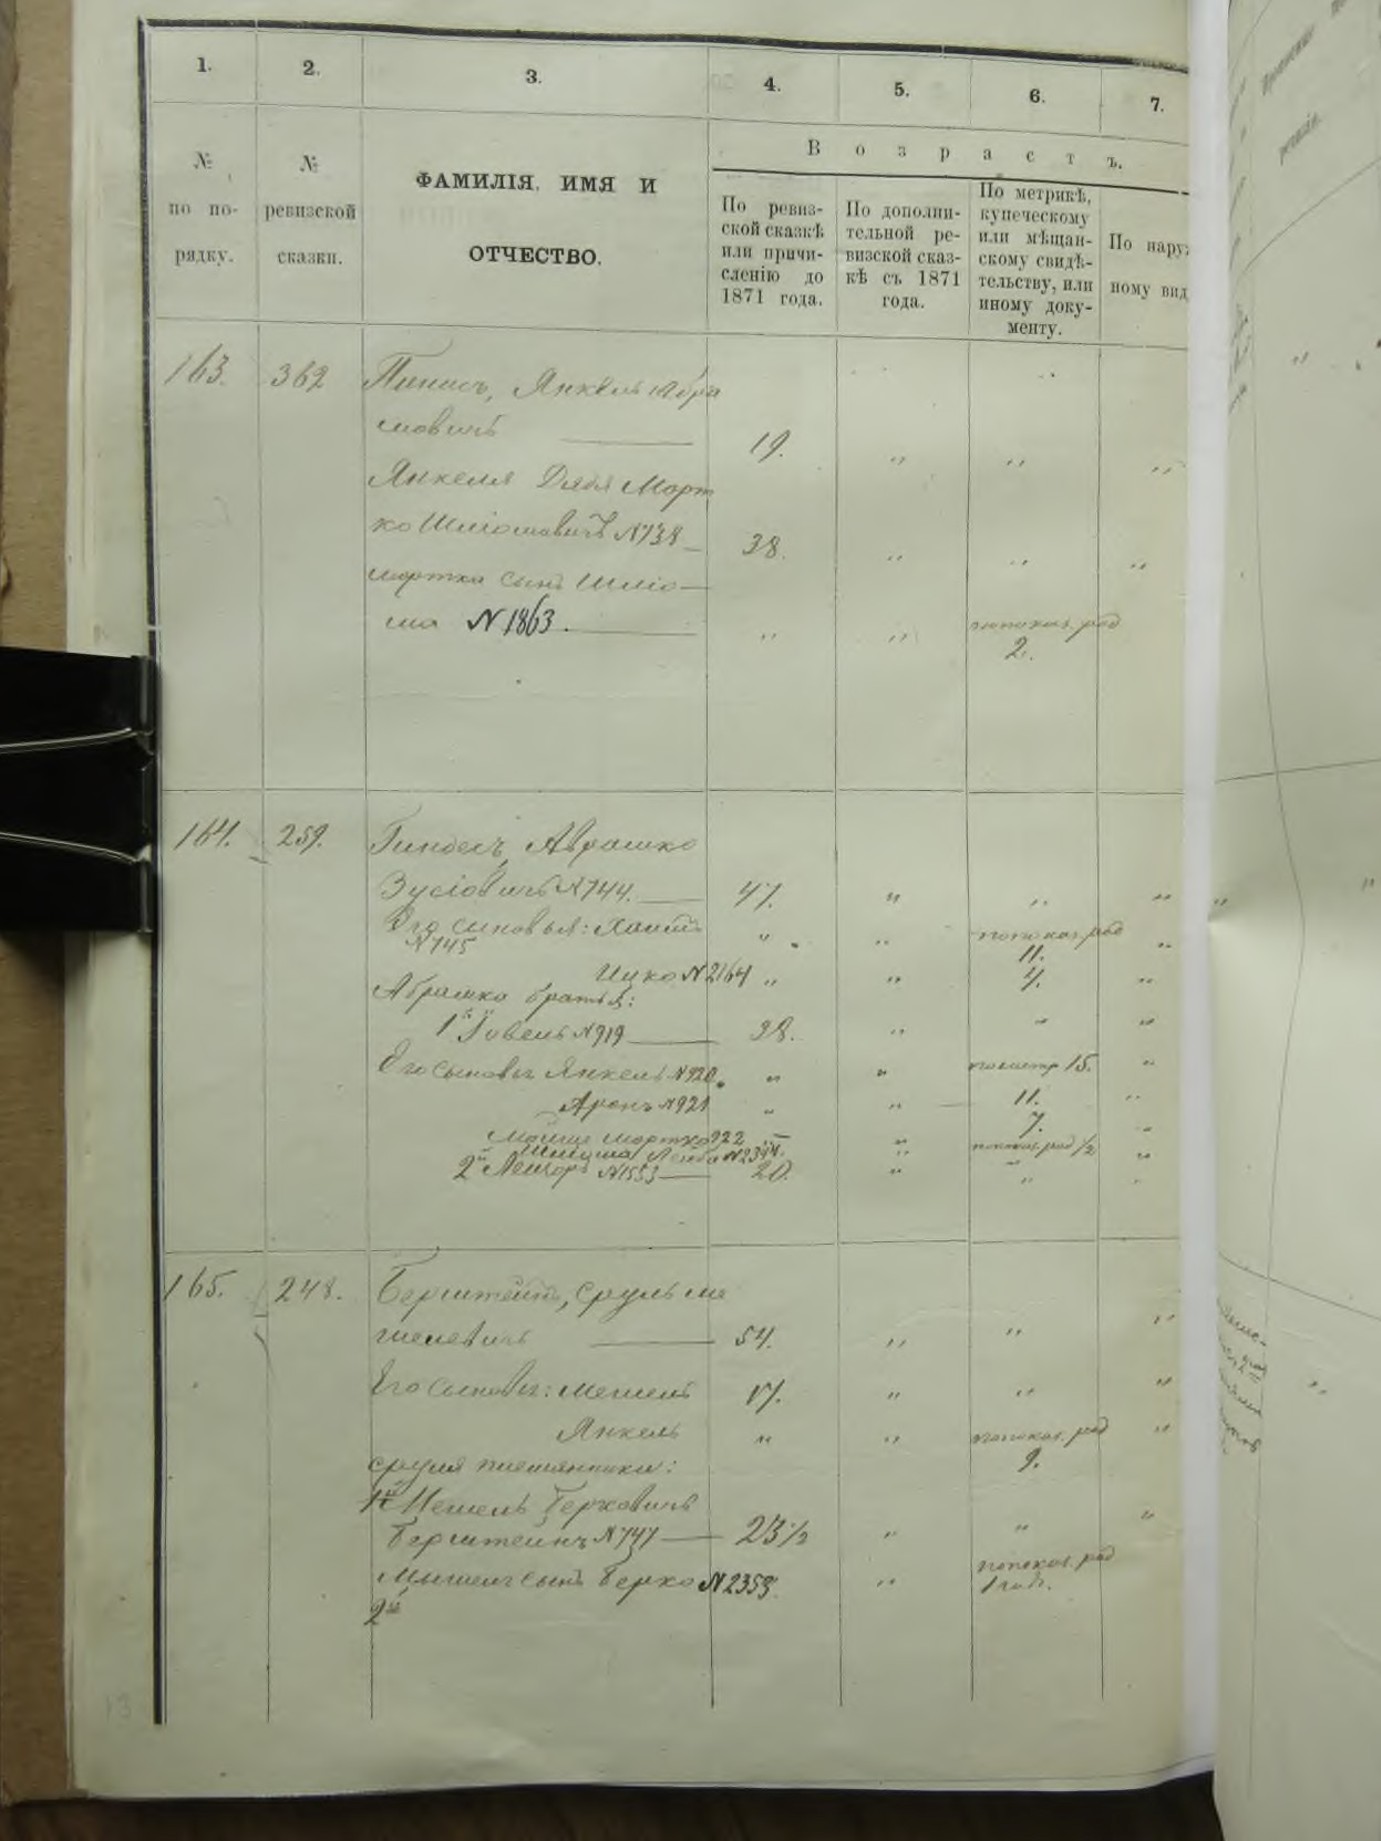 1. 2. 3. 4. 5. 6. 7.
№ по по-рядку.
№ ревизской сказки.
ФАМИЛІЯ, ИМЯ И
ОТЧЕСТВО.
В о з р а с т ъ.
По ревиз-
ской сказкѣ
или причи-
сленію до
1871 года.
По дополни-
тельной ре-
визской сказ-
кѣ съ 1871
года.
По метрикѣ,
купеческому
или мѣщан-
скому свидѣ-
тельству, или
иному доку-
менту.
По нару
ному вид
163. 362 Янкель Абра
мовичъ 19. " " "
Янкеля Дядя Морт
ко Шліомовичъ N738 38. " " "
мортка сынъ Шліо-
ма N1863. " " по показ. род
2.
164. 259. Аврашко
Зусіовичъ N744. 47. " " "
Его сыновья: Хаимъ " " по показ. род "
N745 11.
Ицко N2164 " " 4. "
Абрашко братья:
1й Іовель N919 38. " " "
Его сыновья Янкель N920. " " по метр 15. "
Аронъ N921 " " 11. "
Мошко мортко 922 " " 7. "
Лейба N2344. " по показ. род 1/2 "
2й N1553 20. " " "
165. 248. Берштейнъ, Сруль ме
шелевичъ 54. " " "
Его сыновья: мешель 17. " " "
Янкель " " по показ. род "
9.
Сруля племянники:
1й Мешель Берковичъ
Берштейнъ N747 23 1/2 " " "
сынъ Берко N2353. " по показ. род
1 годъ.
2й
13